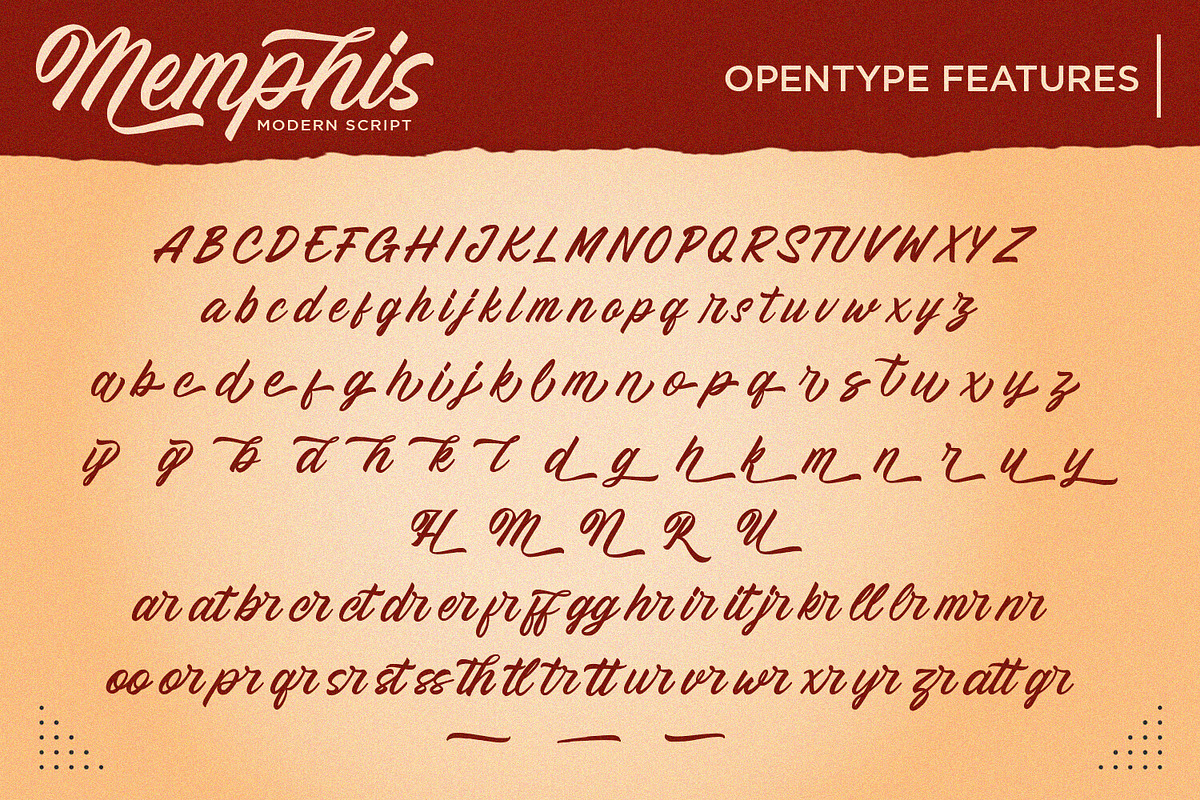 Memphis
MODERN SCRIPT
OPENTYPE FEATURES
A B C D E F G H I J K L M N O P Q R S T U V W X Y Z
a b c d e f g h i j k l m n o p q r s t u v w x y z
a b c d e f g h i j k l m n o p q r s t u x y z
y g b d h k l d g h k m n r u y
H M N R U
ar at br cr ct dr er fr ff gg hr ir it jr kr ll lr mr nr
oo or pr qr sr st ss th tl tr tt ur vr wr xr yr zr att gr